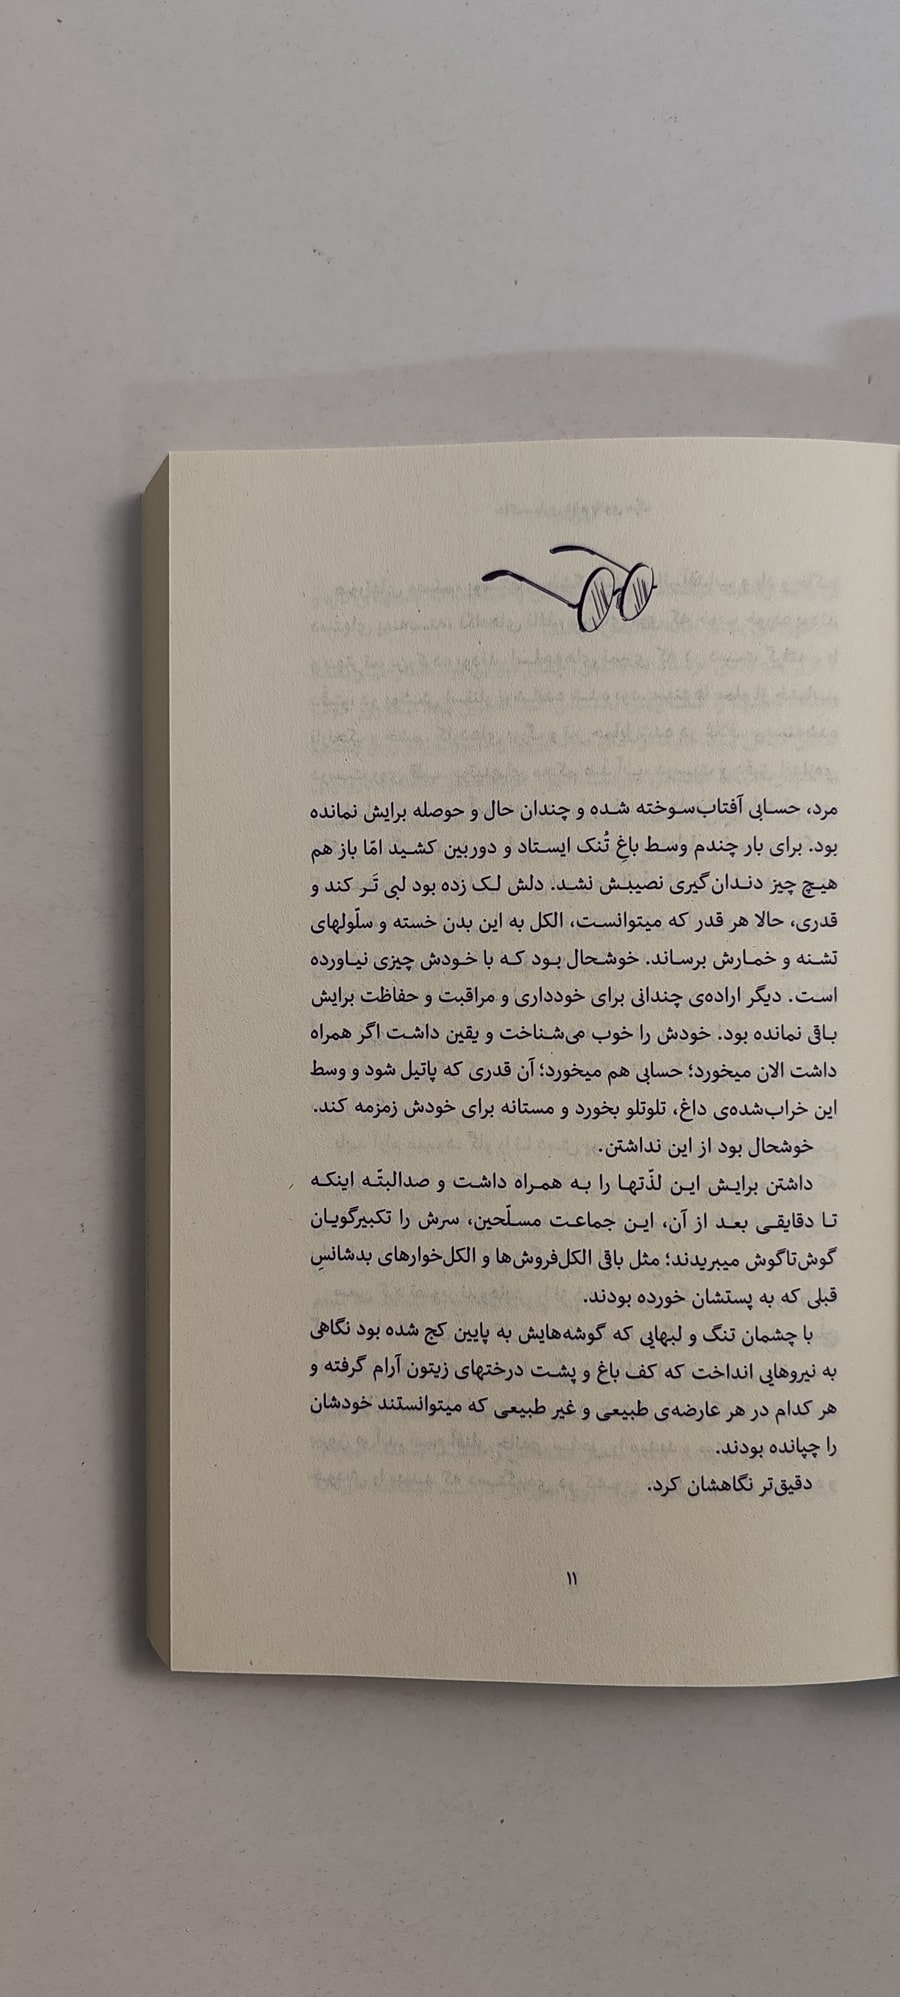 مرد، حسابی آفتاب‌سوخته شده و چندان حال و حوصله برایش نمانده
بود. برای بار چندم وسط باغِ تُنک ایستاد و دوربین کشید امّا باز هم
هیچ چیز دندان‌گیری نصیبش نشد. دلش لک زده بود لبی تَر کند و
قدری، حالا هر قدر که میتوانست، الکل به این بدن خسته و سلّولهای
تشنه و خمارش برساند. خوشحال بود که با خودش چیزی نیاورده
است. دیگر اراده‌ی چندانی برای خودداری و مراقبت و حفاظت برایش
باقی نمانده بود. خودش را خوب می‌شناخت و یقین داشت اگر همراه
داشت الان میخورد؛ حسابی هم میخورد؛ آن قدری که پاتیل شود و وسط
این خراب‌شده‌ی داغ، تلوتلو بخورد و مستانه برای خودش زمزمه کند.
خوشحال بود از این نداشتن.
داشتن برایش این لذّتها را به همراه داشت و صدالبتّه اینکه
تا دقایقی بعد از آن، این جماعت مسلّحین، سرش را تکبیرگویان
گوش‌تاگوش میبریدند؛ مثل باقی الکل‌فروش‌ها و الکل‌خوارهای بدشانسِ
قبلی که به پستشان خورده بودند.
با چشمان تنگ و لبهایی که گوشه‌هایش به پایین کج شده بود نگاهی
به نیروهایی انداخت که کف باغ و پشت درختهای زیتون آرام گرفته و
هر کدام در هر عارضه‌ی طبیعی و غیر طبیعی که میتوانستند خودشان
را چپانده بودند.
دقیق‌تر نگاهشان کرد.
۱۱